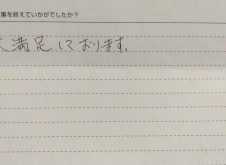 事を終えていかがでしたか?
満足しております。